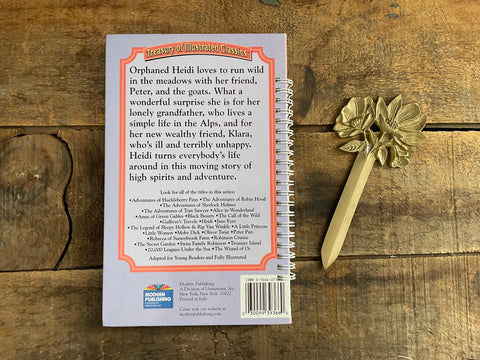 Treasury of Illustrated Classics
Orphaned Heidi loves to run wild
in the meadows with her friend,
Peter, and the goats. What a
wonderful surprise she is for her
lonely grandfather, who lives a
simple life in the Alps, and for
her new wealthy friend, Klara,
who's ill and terribly unhappy.
Heidi turns everybody's life
around in this moving story of
high spirits and adventure.
Look for all of the titles in this series:
Adventures of Huckleberry Finn •The Adventures of Robin Hood
•The Adventures of Sherlock Holmes
•The Adventures of Tom Sawyer •Alice in Wonderland
•Anne of Green Gables •Black Beauty •The Call of the Wild
•Gulliver's Travels •Heidi •Jane Eyre
•The Legend of Sleepy Hollow & Rip Van Winkle •A Little Princess
•Little Women •Moby Dick •Oliver Twist •Peter Pan
•Rebecca of Sunnybrook Farm •Robinson Crusoe
•The Secret Garden •Swiss Family Robinson •Treasure Island
•20,000 Leagues Under the Sea •The Wizard of Oz
Adapted for Young Readers and Fully Illustrated
MODERN
PUBLISHING
Modern Publishing
A Division of Unisystems, Inc.
New York, New York, 10022
Printed in Italy
Come visit our website at:
modernpublishing.com